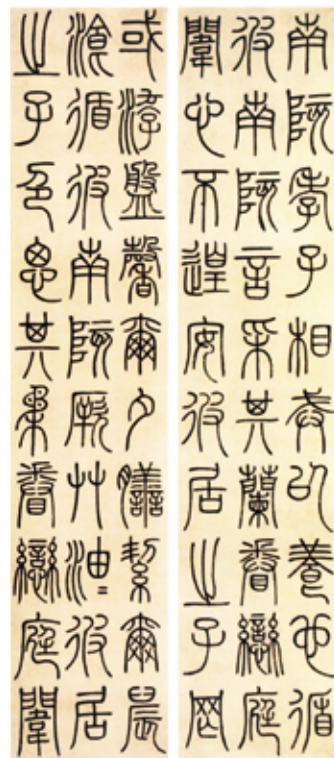 南陔孝子相戒以養也循
彼南陔言采其蘭眷戀庭
闈心不遑安彼居之子罔
或游盤馨爾夕膳絜爾晨
湌循彼南陔厥艸油〻彼居
之子色思其柔眷戀庭闈